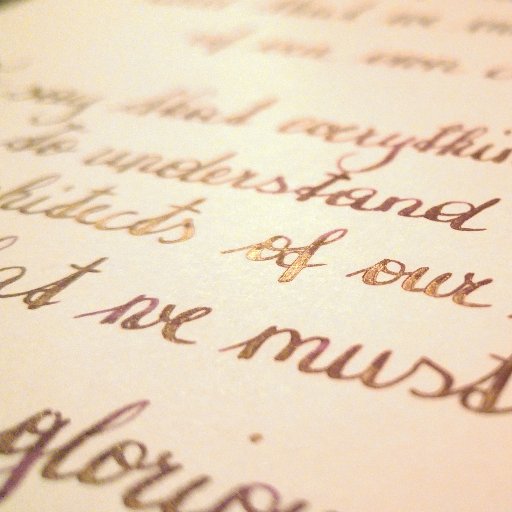 that we
of our own
say that everythin
to understand
chitects of our
at we must
glorious